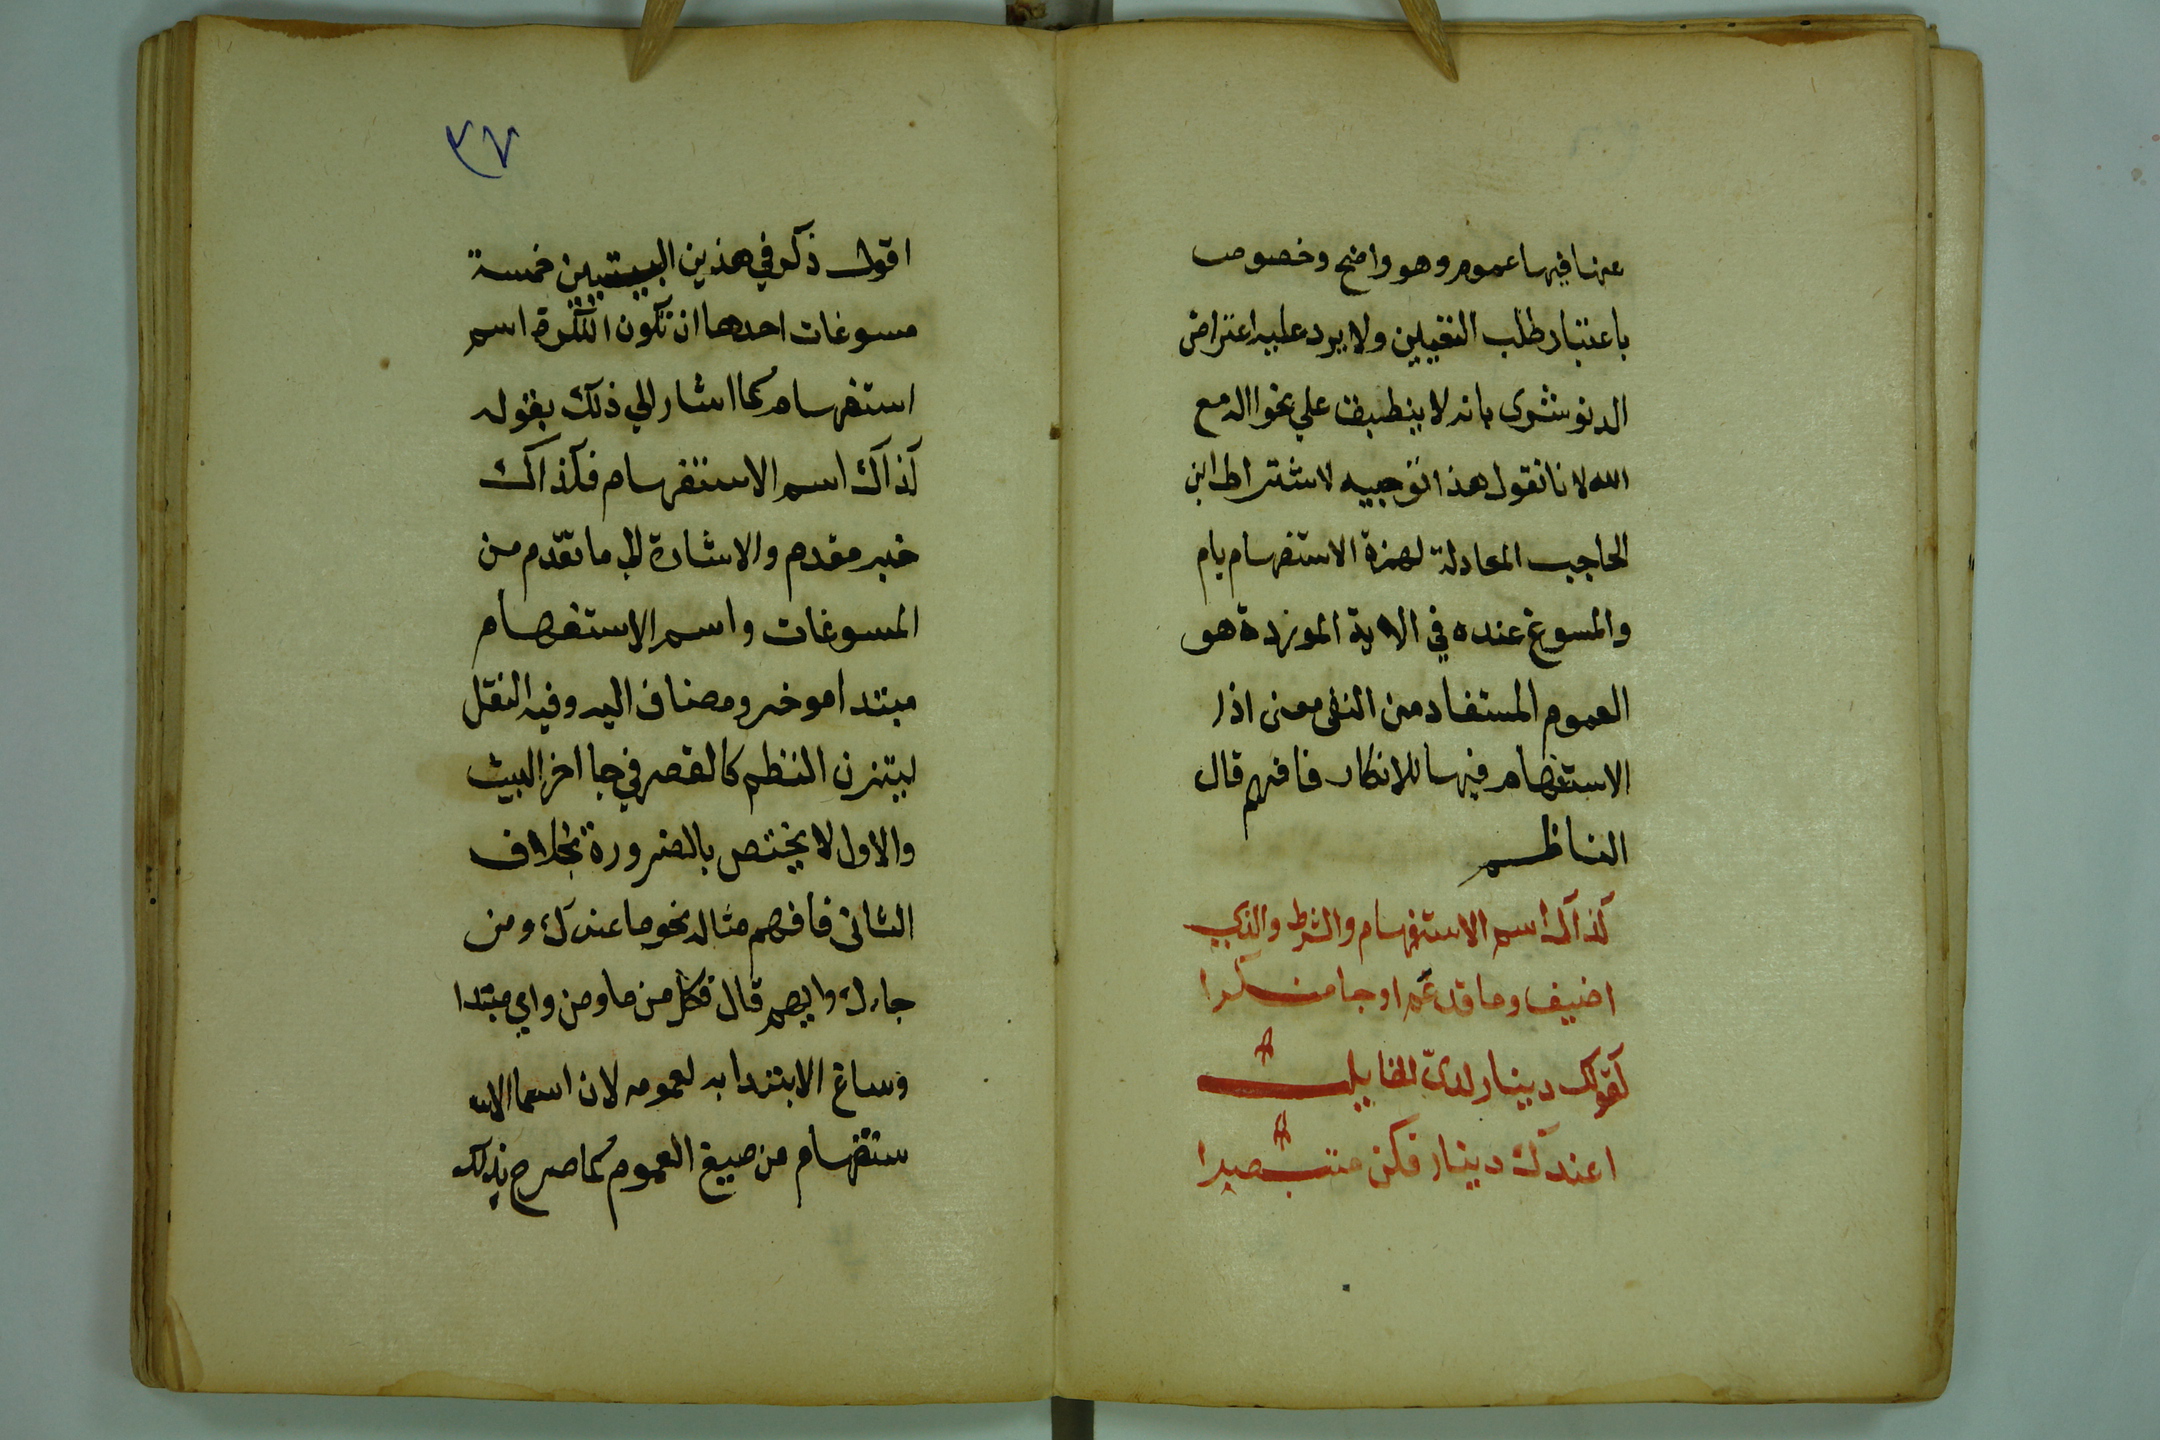 عنها فيها عموم وهو واضح وخصوص
باعتبار طلب التعيين ولا يرد عليه اعتراض
الدنوشرى بانه لا ينطبق علي نحو االه مع
الله لانا نقول هذا توجيه لاشتراط ابن
الحاجب المعادلة لهمزة الاستفهام بام
والمسوغ عنده في الاية الموردة هو
العموم المستفاد من النفى معنى اذا
الاستفهام فيها للانكار فافهم قال
الناظم
كذاك اسم الاستفهام والشرط والذي
اضيف وما قد عم او جا منكرا
كقولك دينار لدىّ لقايل
اعندك دينار فكن متبصرا
٣٧
اقول ذكر في هذين البيتين خمسة
مسوغات احدها ان تكون النكرة اسم
استفهام كما اشار الي ذلك بقوله
كذاك اسم الاستفهام فكذاك
خبر مقدم والاشارة الي ما تقدم من
المسوغات واسم الاستفهام
مبتدا موخر ومضاف اليه وفيه النقل
ليتزن النظم كالقصر في جا اخر البيت
والاول لا يختص بالضرورة بخلاف
الثانى فافهم مثاله نحو ما عندك ومن
جاءك وايهم قال فكل من ما ومن واي مبتدا
وساغ الابتدا به لعمومه لان اسما الاس
ستفهام من صيغ العموم كما صرح بذلك